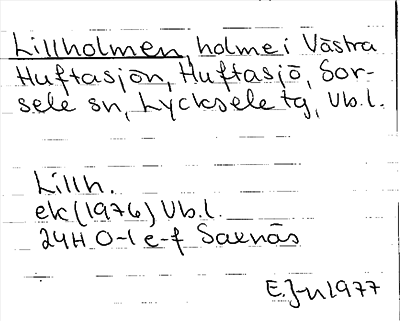 Lillholmen, holme i Västra
Huftasjön, Huftasjö, Sor-
sele sn, Lycksele tg, Vb.l.
Lillh.
ek (1976) Vb.l.
24H 0-1 e-f Saxnäs
E. J-n 1977